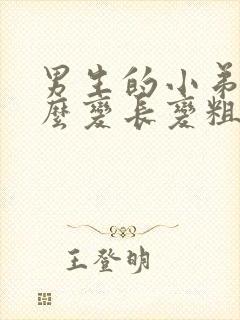 男生的小弟
麼變長變粗
王登明